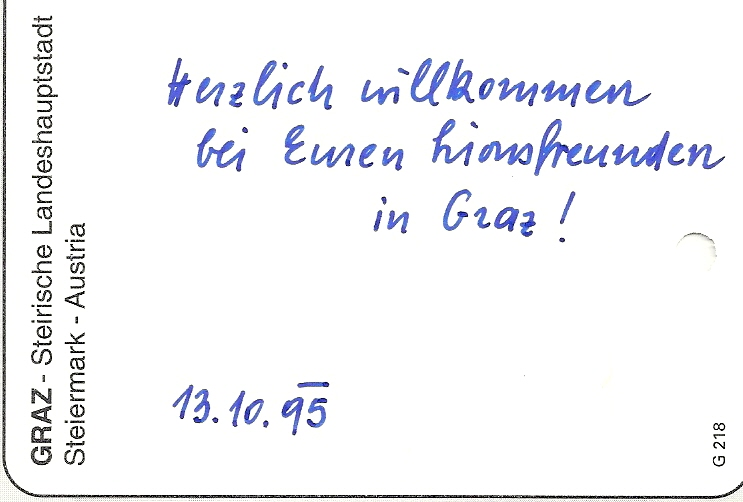 GRAZ - Steirische Landeshauptstadt
Steiermark - Austria
Herzlich willkommen
bei Euren Lionsfreunden
in Graz!
13.10.95
G 218